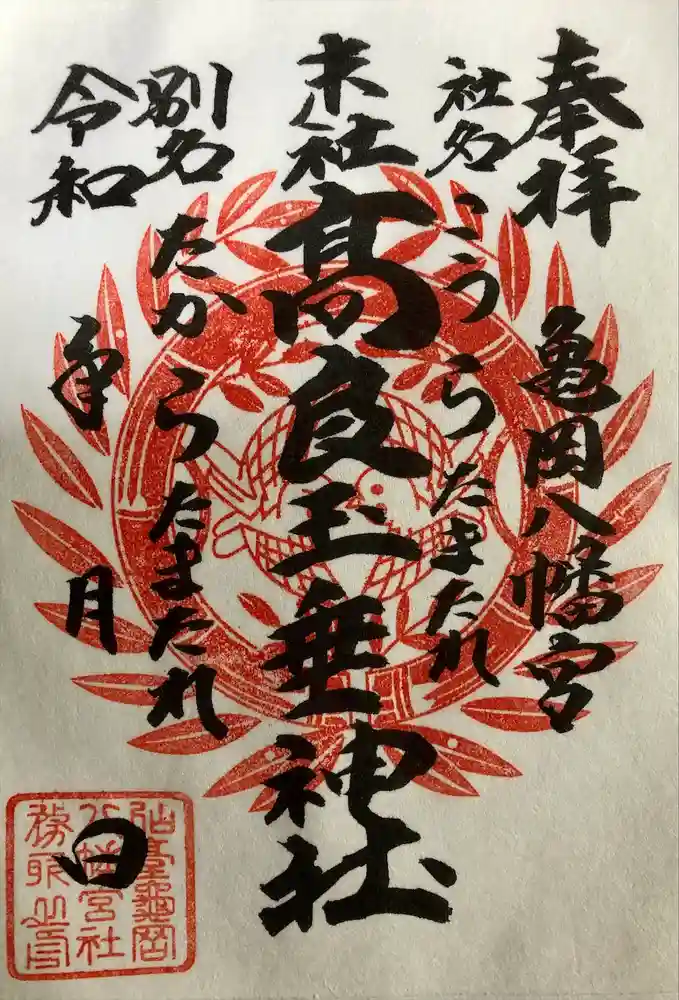 奉拝
亀岡八幡宮
社名
こうらたまたれ
末社
高良玉垂神社
別名
たからたまたれ
令和 年 月 日
仙臺龜岡
八幡宮社
務所之印